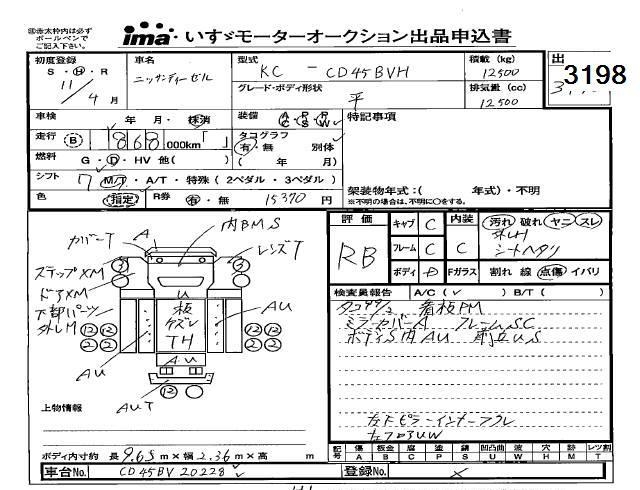 ㊟赤太枠内は必ず
ボールペンで
ご記入下さい。
ima いすゞモーターオークション出品申込書
初度登録
S・H・R
11
4 月
車名
ニッサンディーゼル
型式
KC - CD45BVH
グレード・ボディ形状
平
積載 (kg)
12500
排気量 (cc)
12500
出
3198
車検
年 月・抹消
装備 AC PS PW
走行 B 868 000km「 」
タコグラフ
有・無 別体
( 年 月)
燃料 G・D・HV 他( )
シフト 7 M/T・A/T・特殊 (2ペダル・3ペダル)
色 (指定) R券 有・無 15370 円
特記事項
架装物年式:( 年式)・不明
※不明の場合は、不明に○をする。
評価
RB
キャブ C
フレーム C
ボディ D
内装
C
Fガラス
汚れ 破れ ヤニ スレ
シートヘタリ
割れ 線 点傷 イバリ
検査員報告 A/C( ) B/T( )
看板PM
ミラーカバーA フレームSC
ボディS内AU
左下ピラーインナーフクレ
カバーT
A
内BMS
レンズT
ステップXM
ドアXM
下部パーツ
外しM
U
板
ケズレ
TH
AU
AU
AU
AUT
上物情報
ボディ内寸約 長 9.65 m×幅 2.36 m×高 m
記号 A傷 B板金 C腐 P塗 S錆 U凹凸曲 W波 H穴 M跡 Tレンズ割
車台No. CD45BV 20228
登録No.